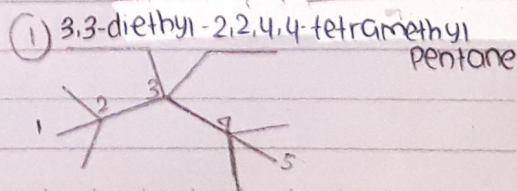 ① 3,3-diethyl-2,2,4,4-tetramethyl
pentane
3
2
1
4
5